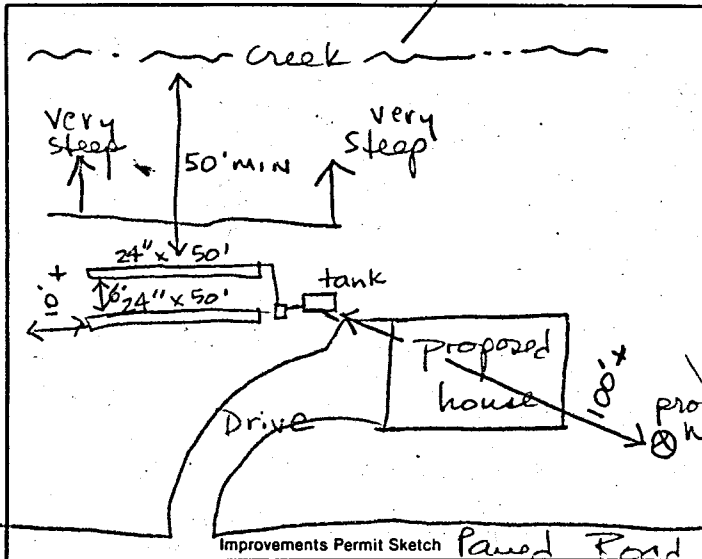 Creek
very
steep
very
steep
50' MIN
24" x 50'
10'+
6'
24" x 50'
tank
proposed
house
100'+
Drive
Improvements Permit Sketch
Paved Road